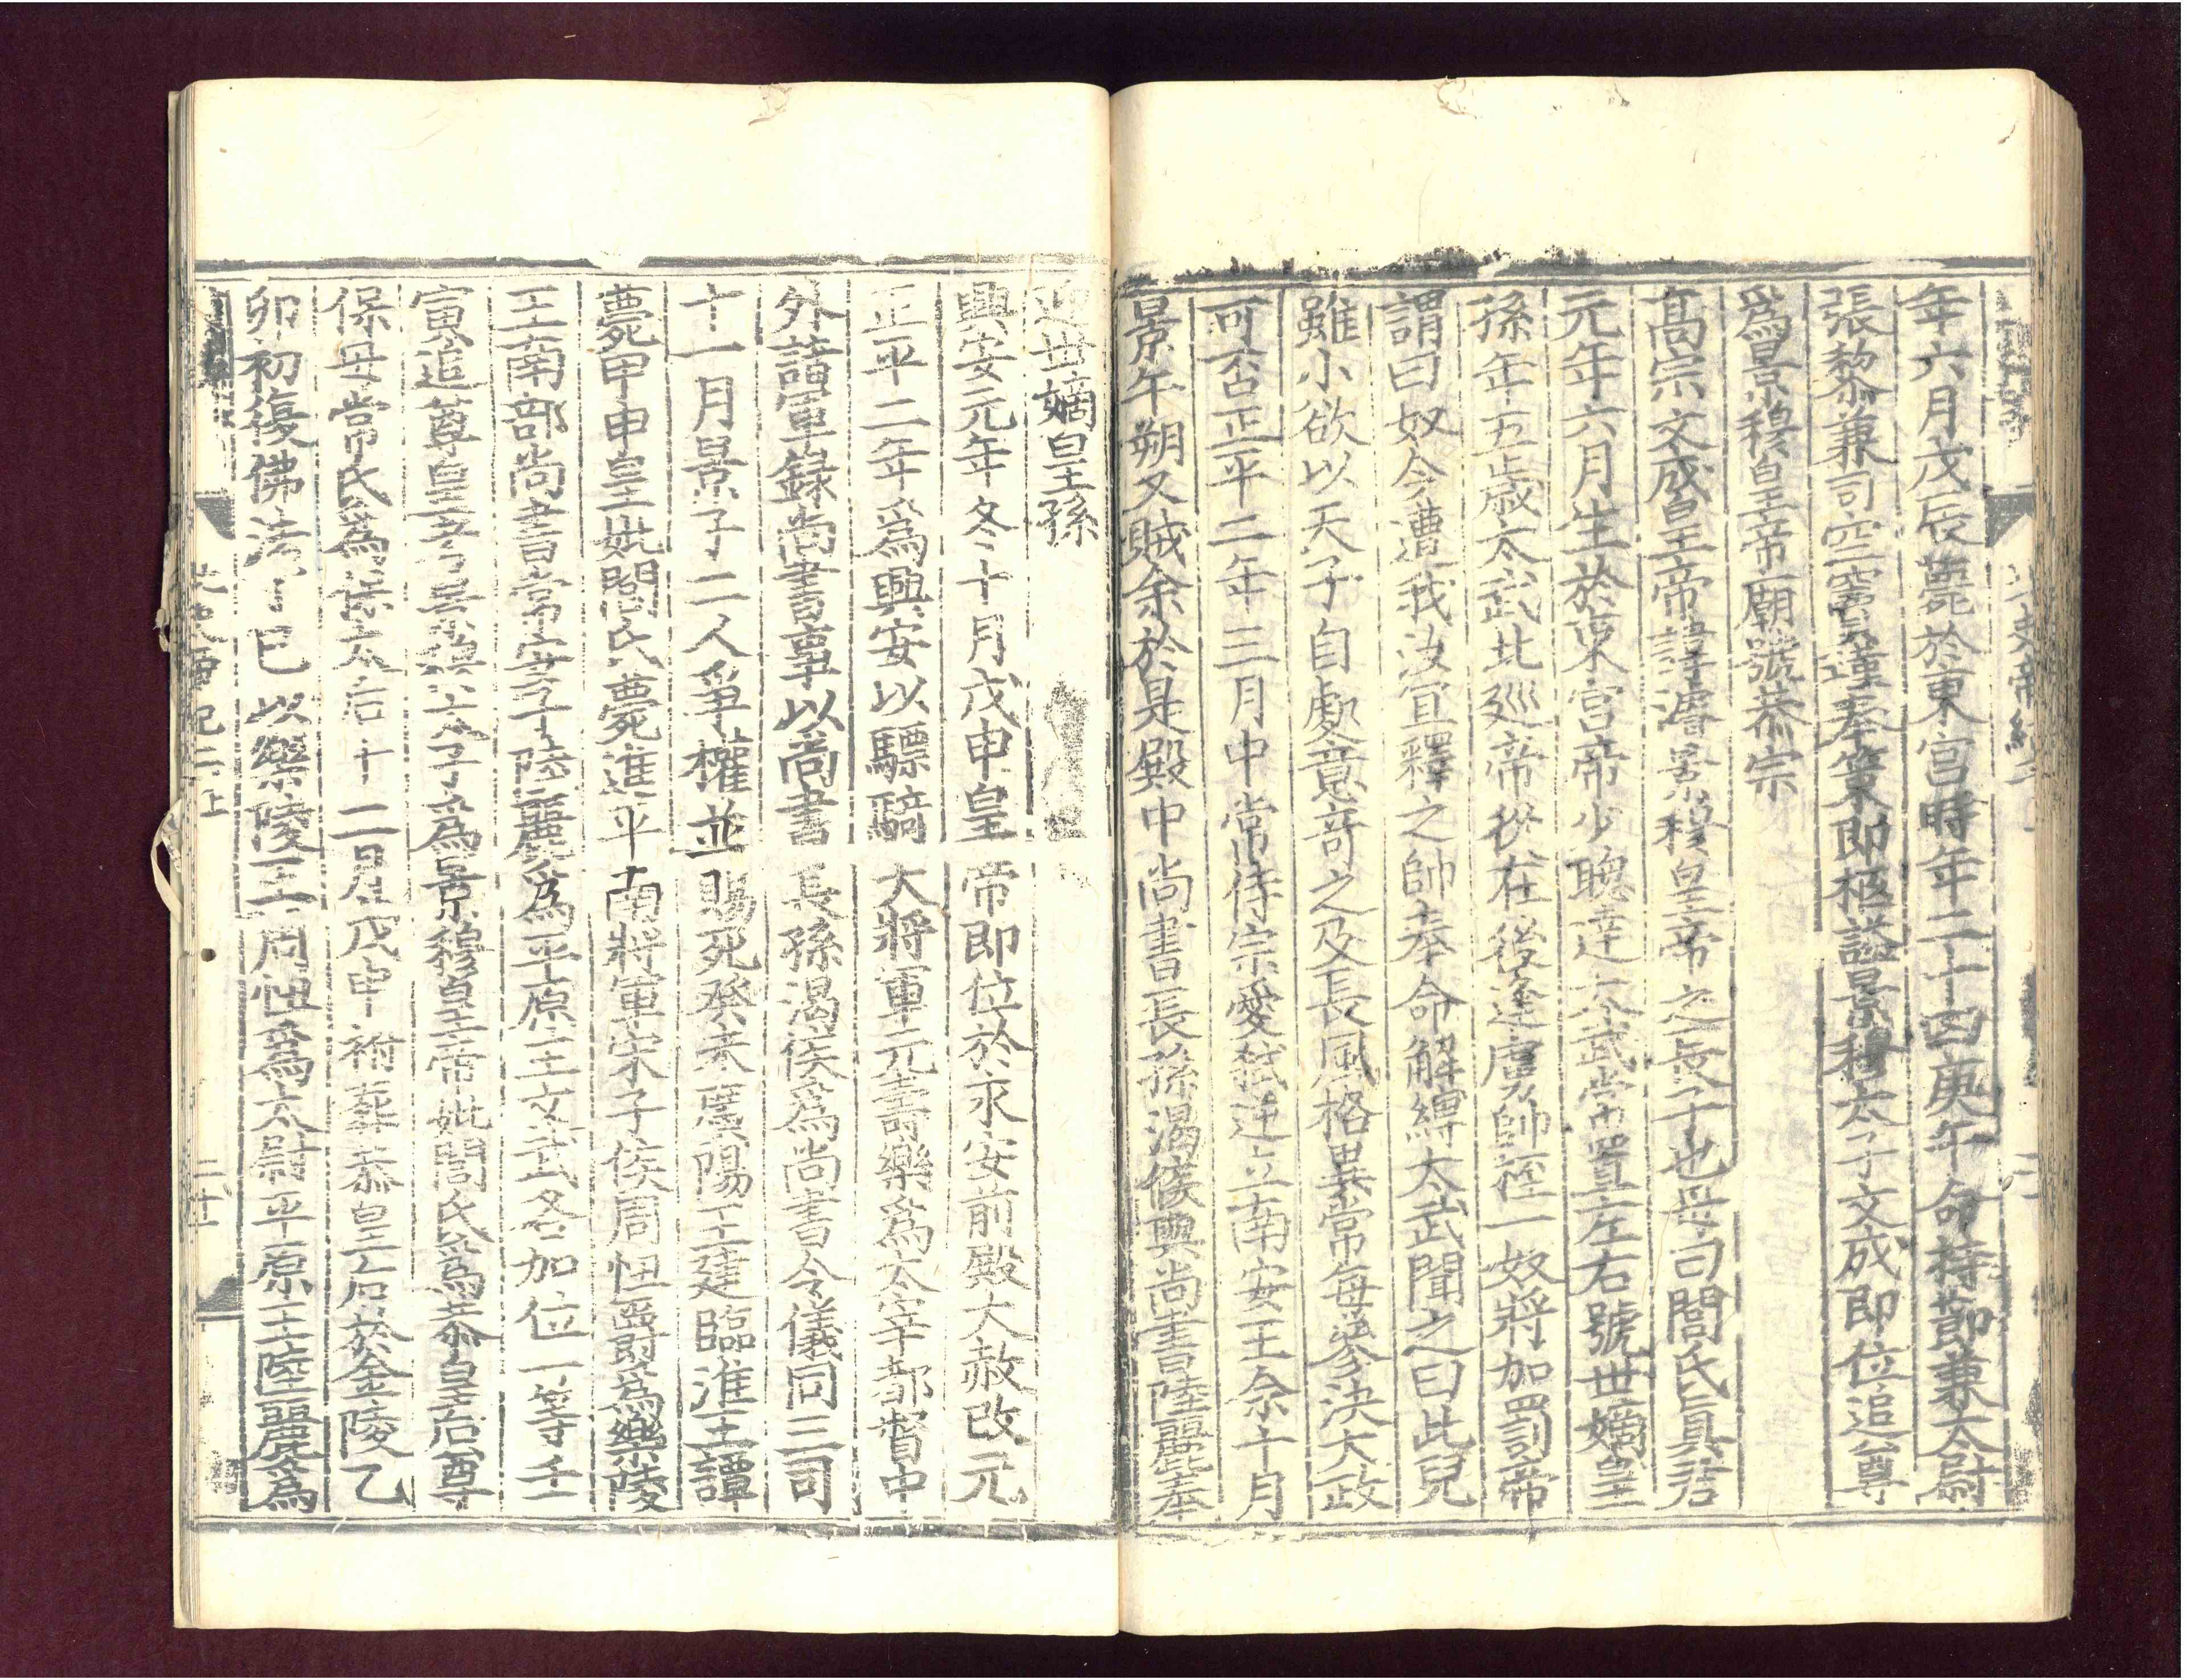 年六月戊辰薨於東宮時年二十四庚午命持節兼太尉
張黎兼司空竇瑾奉策即柩謚景穆太子文成即位追尊
爲景穆皇帝廟號恭宗
髙宗文成皇帝諱濬景穆皇帝之長子也母曰閭氏眞君
元年六月生於東宮帝少聰達太武常置左右號世嫡皇
孫年五歲太武北廵帝從在後逢虜帥桎一奴將加罰帝
謂曰奴今遭我汝宜釋之帥奉命解縛太武聞之曰此兒
雖小欲以天子自處意奇之及長風格異常每參決大政
可否正平二年三月中常侍宗愛弑逆立南安王余十月
景午朔又賊余於是殿中尚書長孫渴侯與尚書陸麗奉
迎世嫡皇孫
興安元年冬十月戊申皇帝即位於永安前殿大赦改元
正平二年爲興安以驃騎大將軍元壽樂爲太宰都督中
外諸軍録尚書事以尚書長孫渴侯爲尚書令儀同三司
十一月景子二人爭權並賜死癸未廣陽王建臨淮王譚
薨甲申皇妣閭氏薨進平南將軍宋子侯周忸爵爲樂陵
王南部尚書章安子陸麗爲平原王文武各加位一等壬
寅追尊皇考景穆太子爲景穆皇帝妣閭氏爲恭皇后尊
保母常氏爲保太后十二月戊申祔葬恭皇后於金陵乙
卯初復佛法丁巳以樂陵王周忸爲太尉平原王陸麗爲
北史帝紀二上
二十一